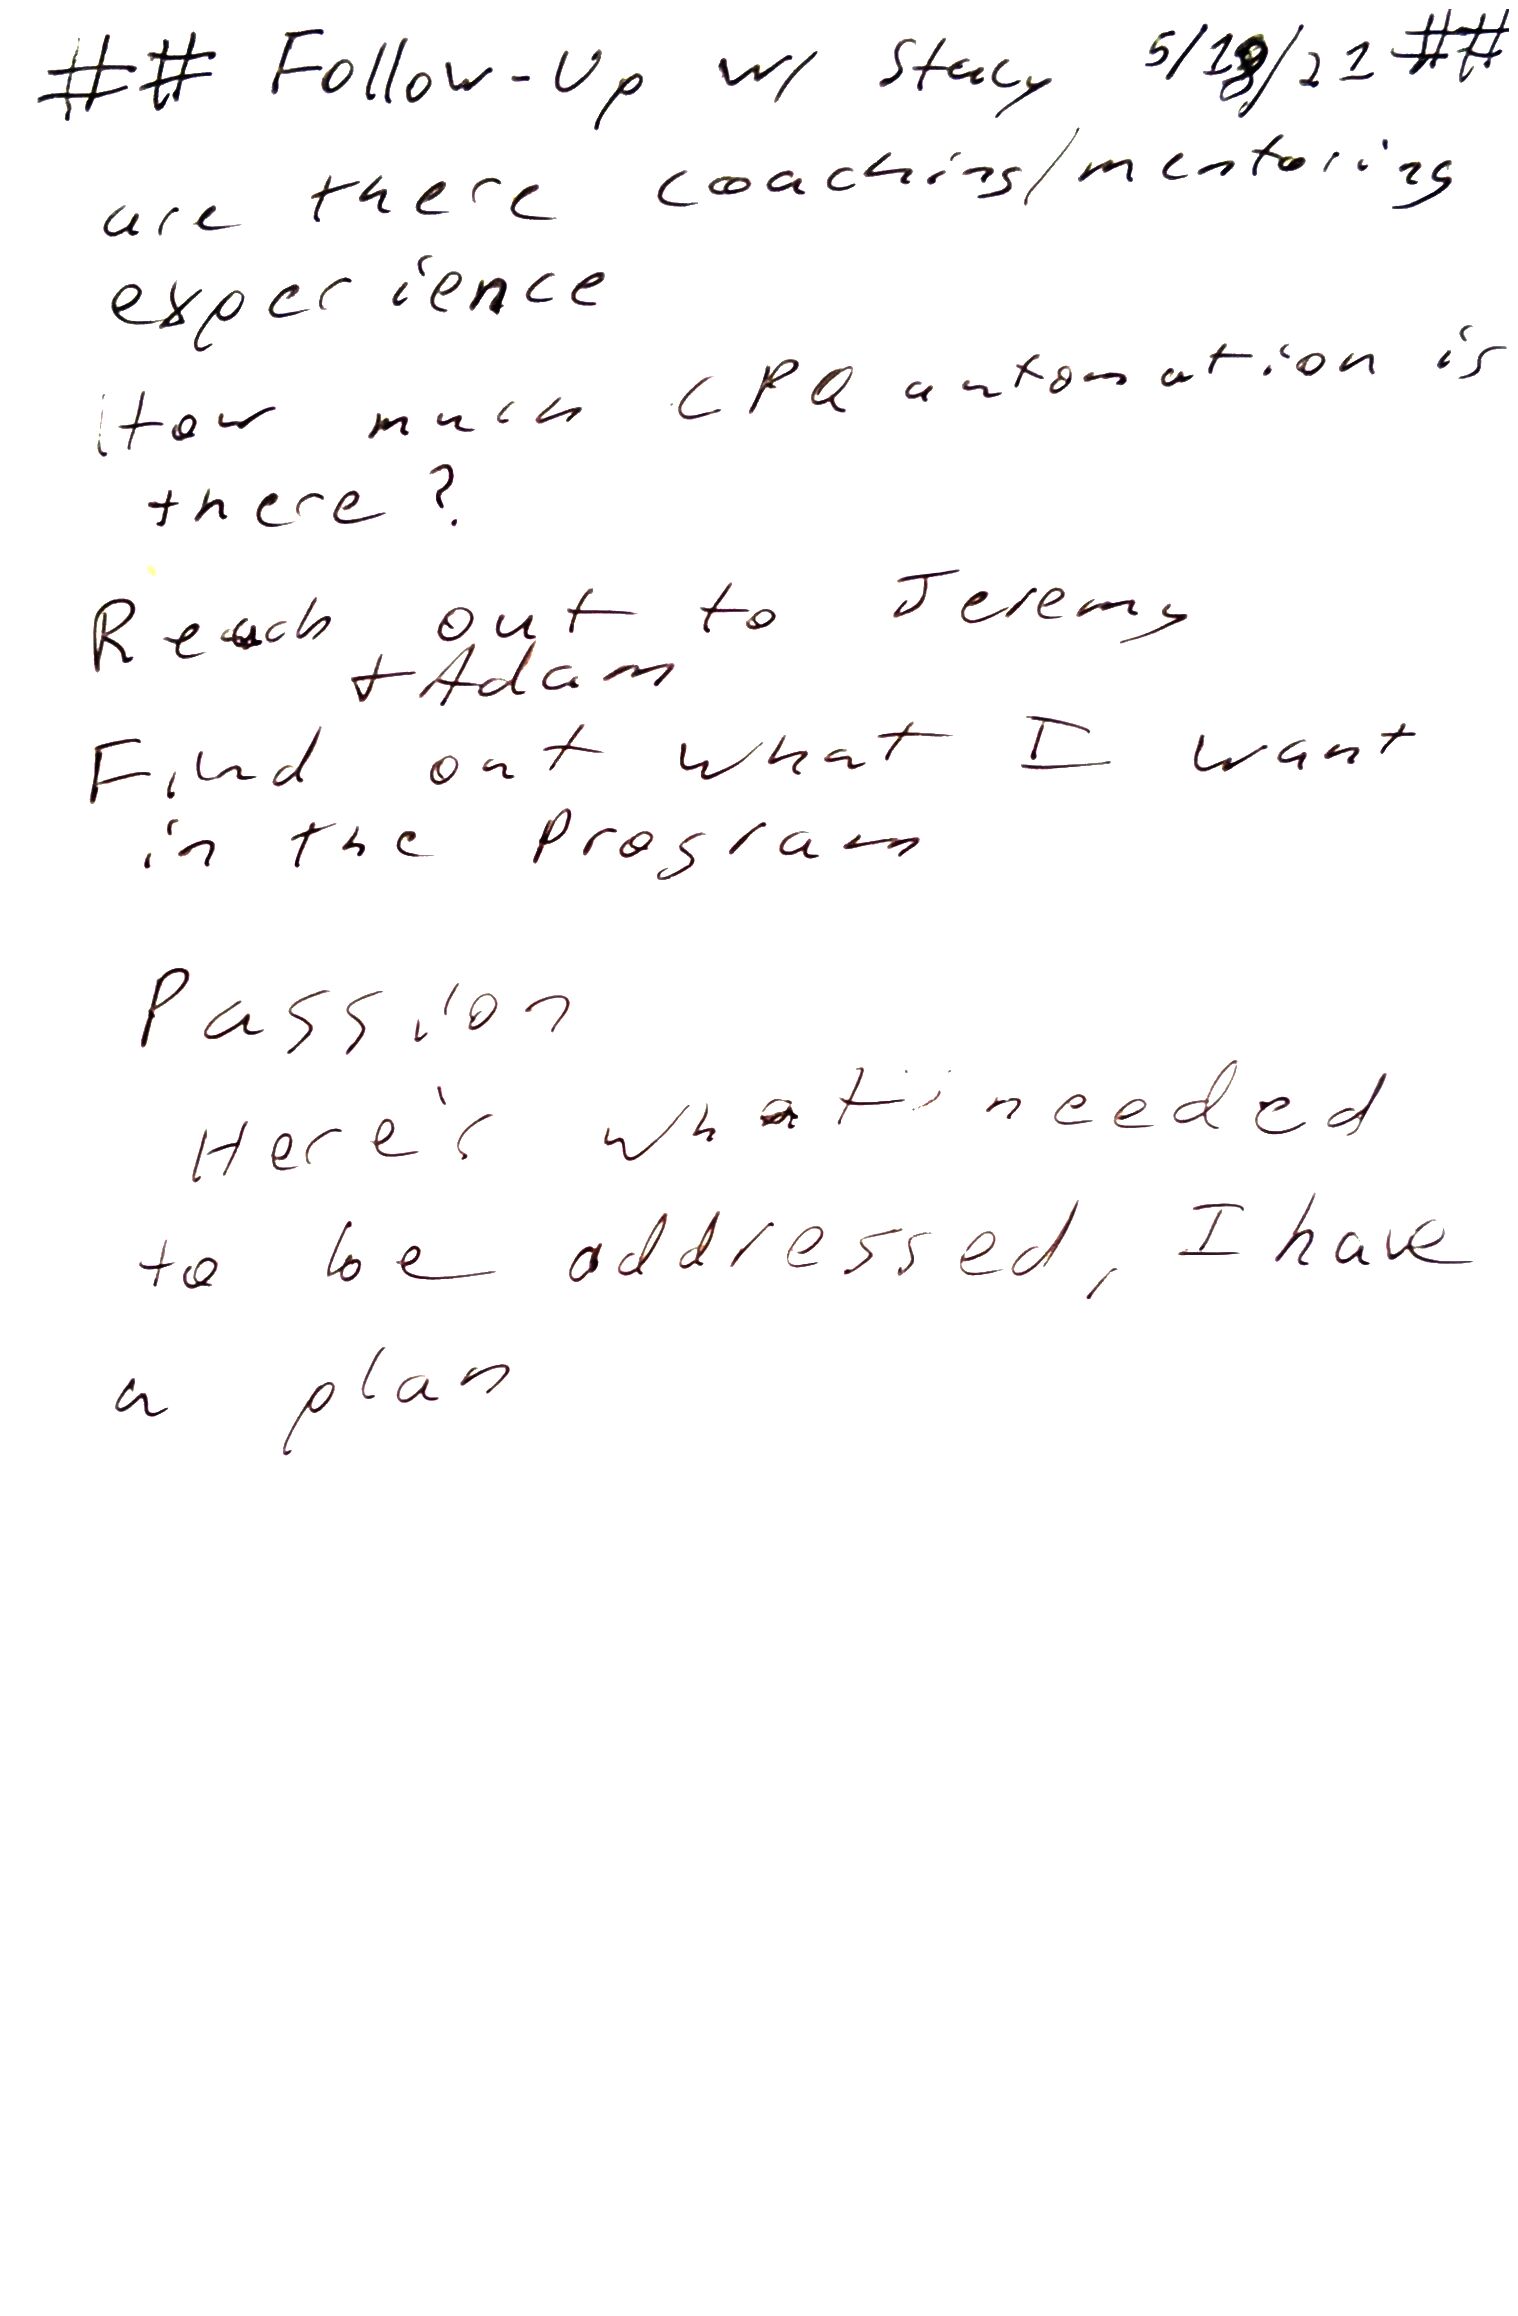 ## Follow-Up w/ Stacy 5/18/21 ##
are there coaching/mentoring
experience
How much CPQ automation is
there?
Reach out to Jeremy
+ Adam
Find out what I want
in the Program
Passion
Here's what needed
to be addressed, I have
a plan